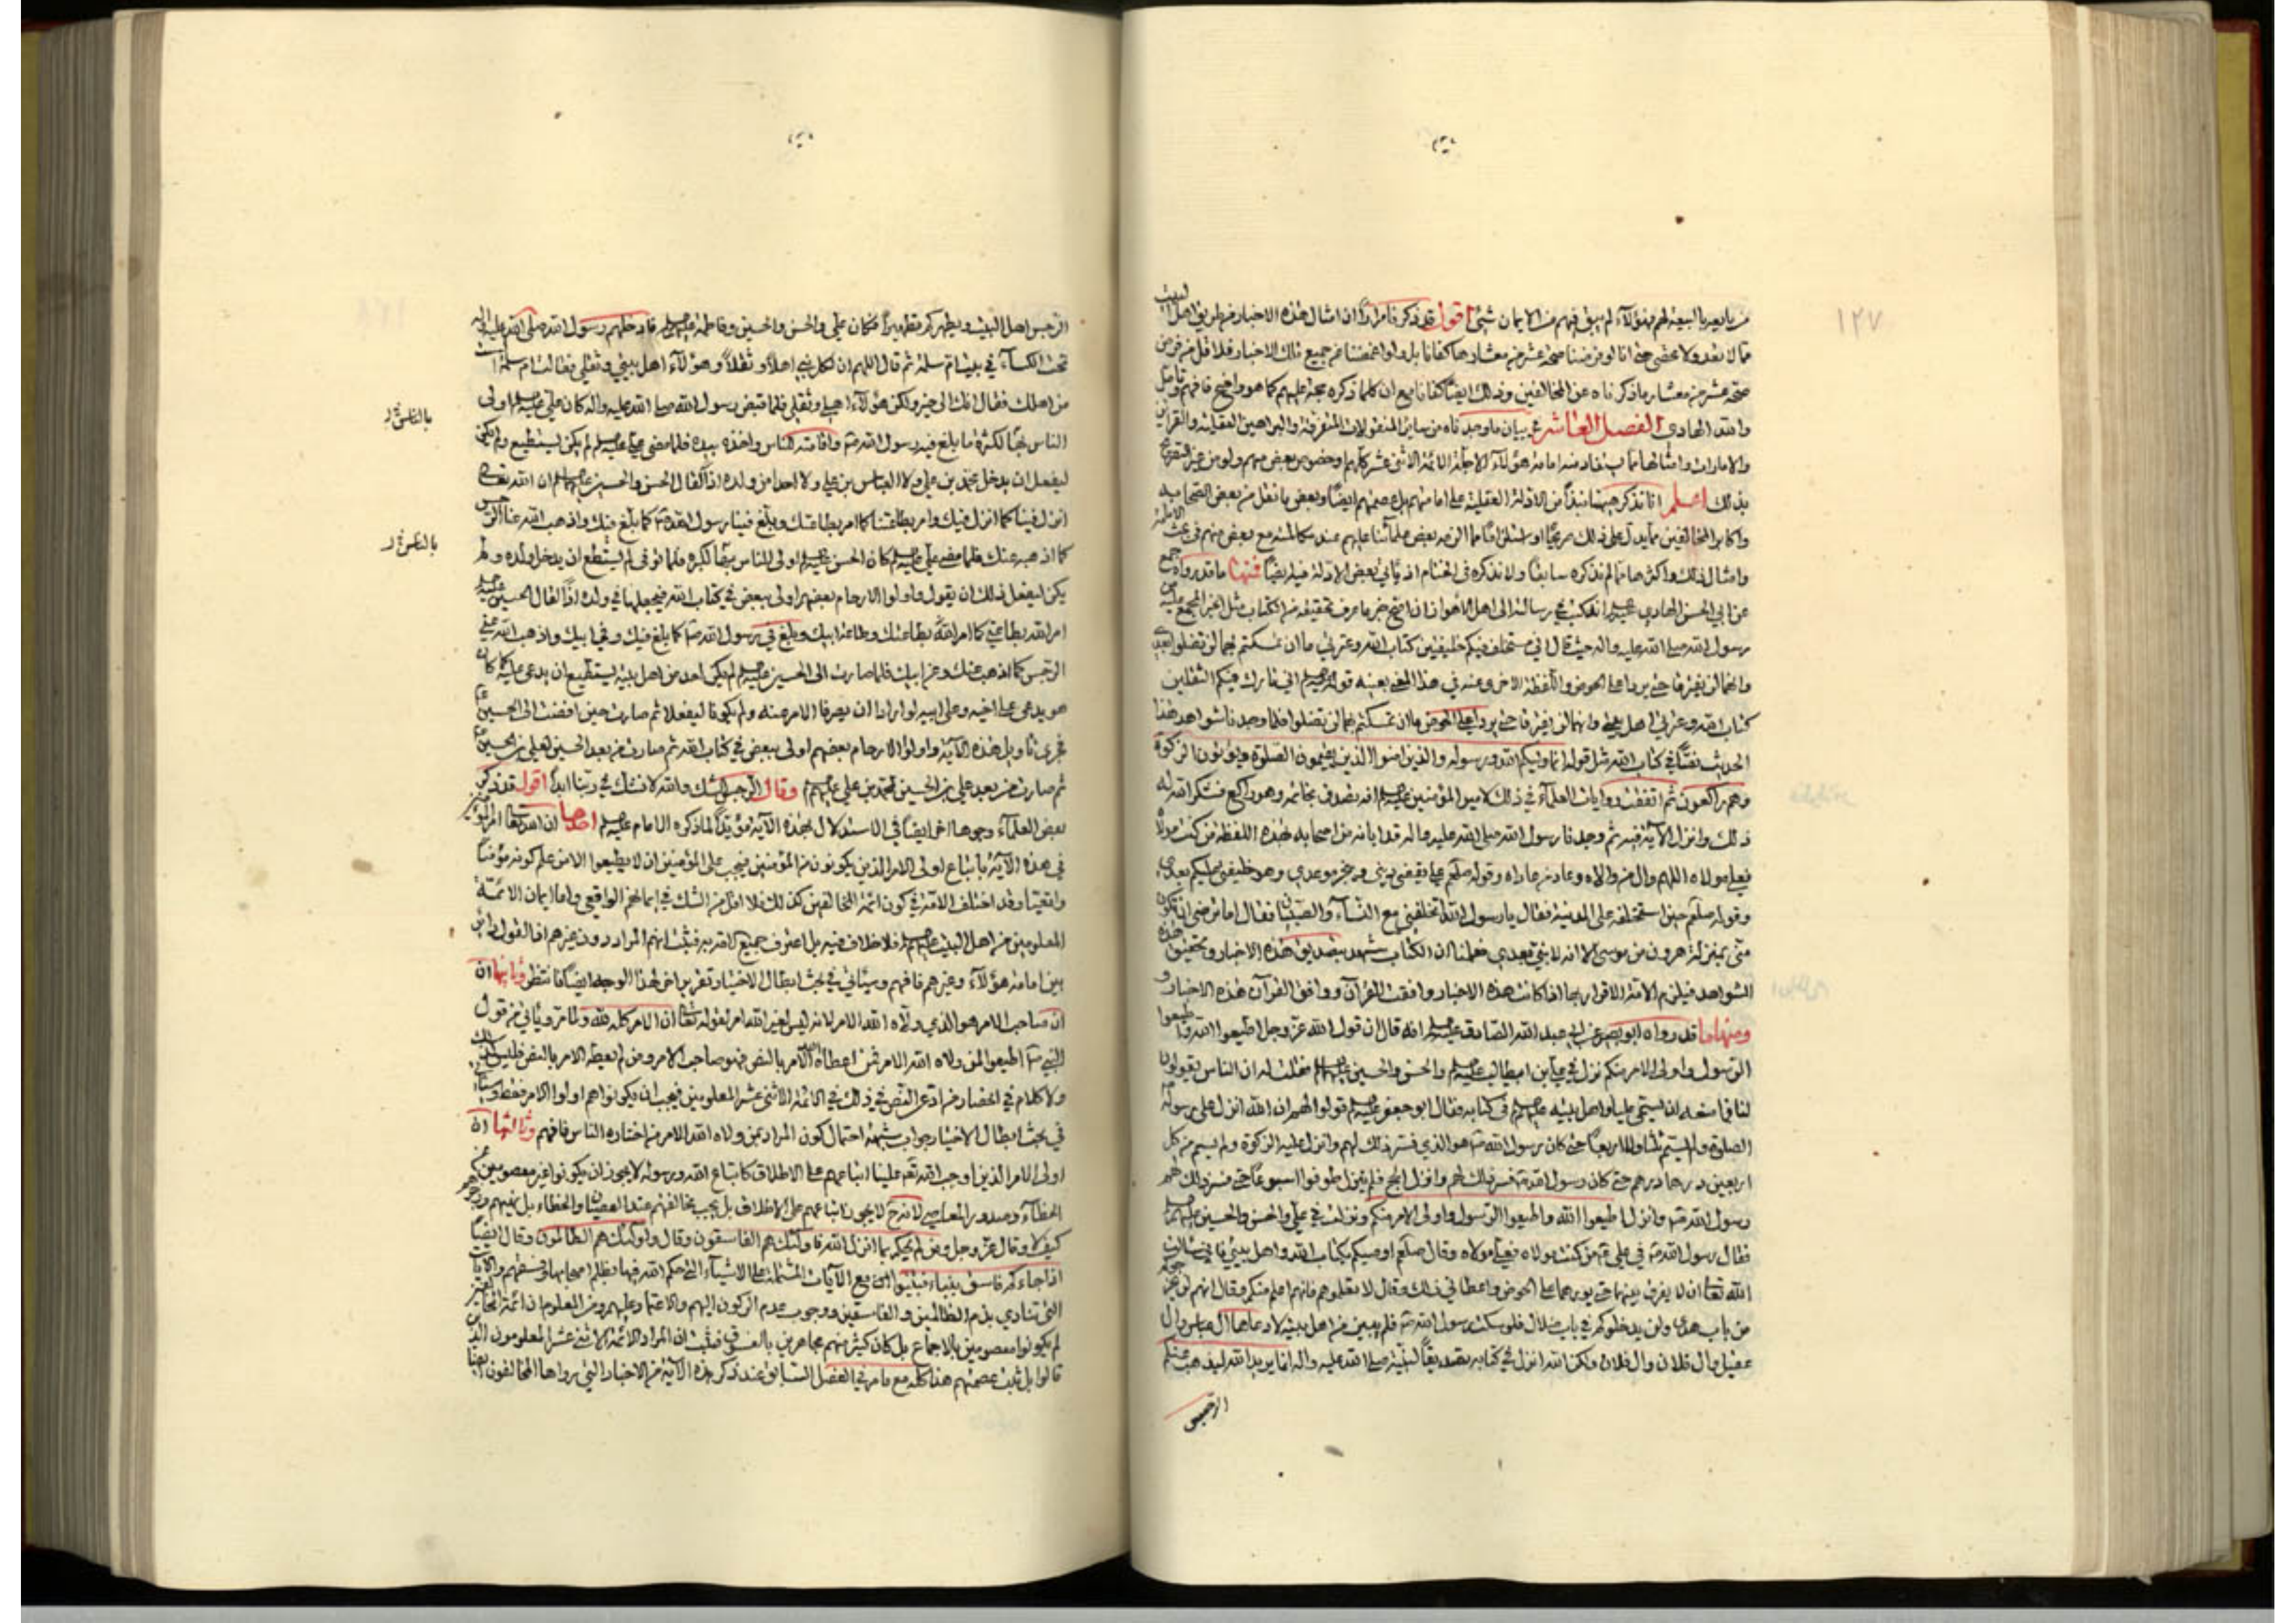 ١٢٧
من يابعه بالبيعة لهم فهؤلاء لم يبق فيهم من الايمان شئ اقول قد ذكرنا مرارا ان امثال هذه الاخبار من طريق اهل البيت
مما لا تعد ولا تحصى حتى انا لو فرضنا صحة عشر من معشارها كفانا بل ولو اغمضنا عن جميع تلك الاخبار فلا اقل من فرض
صحة عشر من معشار ما ذكرناه عن المخالفين وذلك ايضا كفانا مع ان كلما ذكره حجة عليهم كما هو واضح فافهم وتامل
والله الهادي الفصل العاشر في بيان ما وجدناه من ساير المنقولات المتفرقة والبراهين العقلية والقراين
والامارات وامثالها مما يستفاد منه امامة هؤلاء الاجلة الائمة الاثنى عشر كلهم وخصوص بعض منهم ولو من غير التصريح
بذلك اعلم انا نذكر هيهنا نبذا من الادلة العقلية على امامتهم بل عصمتهم ايضا وبعض ما نقل من بعض الصحابة
واكابر المخالفين مما يدل على ذلك صريحا او استلزاما مما الزمه بعض علمائنا عليهم عند مكالمته مع بعض منهم في بحث الامامة
وامثال ذلك واكثرها مما لم نذكره سابقا ولا نذكره في الختام اذ ياتي بعض الادلة فيه ايضا فمنها ما قد رواه جمع
عن ابي الحسن الهادي عليه السلم انه كتب في رسالته الى اهل الاهواز ان اصح خبر ما عرف تحقيقه من الكتاب مثل الخبر المجمع عليه من
رسول الله صلى الله عليه واله حيث قال اني مستخلف فيكم خليفتين كتاب الله وعترتي ما ان تمسكتم بهما لن تضلوا بعدي
وانهما لن يفترقا حتى يردا على الحوض واللفظة الاخرى عنه في هذا المعنى بعينه قوله اني تارك فيكم الثقلين
كتاب الله وعترتي اهل بيتي وانهما لن يفترقا حتى يردا على الحوض ما ان تمسكتم بهما لن تضلوا فلما وجدنا شواهد هذا
الحديث نصا في كتاب الله مثل قوله انما وليكم الله ورسوله والذين امنوا الذين يقيمون الصلوة ويؤتون الزكوة
وهم راكعون ثم اتفقت روايات العلماء في ذلك لامير المؤمنين عليه السلم انه تصدق بخاتمه وهو راكع فشكر الله له
ذلك وانزل الآية فيه ثم وجدنا رسول الله صلى الله عليه واله قد ابانه من اصحابه بهذه اللفظة من كنت مولاه
فعلي مولاه اللهم وال من والاه وعاد من عاداه وقوله صلعم علي يقضي ديني وينجز موعدي وهو خليفتي عليكم بعدي
وقوله صلعم حين استخلفه على المدينة فقال يا رسول الله اتخلفني مع النساء والصبيان فقال اما ترضى ان تكون
منى بمنزلة هرون من موسى الا انه لا نبي بعدي فعلمنا ان الكتاب شهد بتصديق هذه الاخبار وتحقيق هذه
الشواهد فيلزم الامة الاقرار بها اذا كانت هذه الاخبار وافقت القرآن ووافق القرآن هذه الاخبار و
ومنها ما قد رواه ابو بصير عن ابي عبد الله الصادق عليه السلم انه قال ان قول الله عز وجل اطيعوا الله واطيعوا
الرسول واولى الامر منكم نزل في علي بن ابيطالب عليه السلم والحسن والحسين عليهم السلم فقلت له ان الناس يقولون
لنا فما منعه ان يسمى عليا واهل بيته عليهم السلم في كتابه فقال ابو جعفر عليه السلم قولوا لهم ان الله انزل على رسوله
الصلوة ولم يسم ثلثا ولا اربعا حتى كان رسول الله ص هو الذي فسر ذلك لهم وانزل عليه الزكوة ولم يسم من كل
اربعين درهما درهم حتى كان رسول الله ص فسر ذلك لهم وانزل الحج فلم ينزل طوفوا اسبوعا حتى فسر ذلك لهم
رسول الله ص وانزل اطيعوا الله واطيعوا الرسول واولى الامر منكم ونزلت في علي والحسن والحسين عليهم السلم
فقال رسول الله ص في علي ع من كنت مولاه فعلي مولاه وقال صلعم اوصيكم بكتاب الله واهل بيتي فاني سالت
الله تعالى ان لا يفرق بينهما حتى يوردهما على الحوض فاعطاني ذلك وقال لا تعلموهم فانهم اعلم منكم وقال انهم لن يخرجوكم
من باب هدى ولن يدخلوكم في باب ضلال فلو سكت رسول الله ص فلم يبين من اهل بيته لادعاها آل عباس وآل
عقيل وال فلان وال فلان ولكن الله انزل في كتابه تصديقا لنبيه صلى الله عليه واله انما يريد الله ليذهب عنكم
الرجس
الرجس اهل البيت ويطهركم تطهيرا فكان علي والحسن والحسين وفاطمة عليهم السلم فادخلهم رسول الله صلى الله عليه واله
تحت الكساء في بيت ام سلمة ثم قال اللهم ان لكل نبي اهلا وثقلا وهؤلاء اهل بيتي وثقلي فقالت ام سلمة الست
من اهلك فقال انك الى خير ولكن هؤلاء اهلي وثقلي فلما قبض رسول الله صلى الله عليه واله كان علي عليه السلم اولى
الناس بها لكثرة ما بلغ فيه رسول الله ص واقامته للناس واخذه بيده فلما مضى علي عليه السلم لم يكن يستطيع ولم يكن
ليفعل ان يدخل محمد بن علي ولا العباس بن علي ولا احدا من ولده اذا لقال الحسن والحسين عليهما السلم ان الله تعالى
انزل فينا كما انزل فيك وامر بطاعتنا كما امر بطاعتك وبلغ فينا رسول الله ص كما بلغ فيك واذهب الله عنا الرجس
كما اذهبه عنك فلما مضى علي عليه السلم كان الحسن عليه السلم اولى للناس بها لكبره فلما توفى لم يستطع ان يدخل ولده ولم
يكن ليفعل ذلك ان يقول واولوا الارحام بعضهم اولى ببعض في كتاب الله فيجعلها في ولده اذا لقال الحسين عليه السلم
امر الله بطاعتي كما امر الله بطاعتك وطاعة ابيك وبلغ في رسول الله ص كما بلغ فيك وفي ابيك واذهب الله عني
الرجس كما اذهب عنك وعن ابيك فلما صارت الى الحسين عليه السلم لم يكن احد من اهل بيته يستطيع ان يدعى عليه كما كان
هو يدعى على اخيه وعلى ابيه لو ارادا ان يصرفا الامر عنه ولم يكونا ليفعلا ثم صارت حين افضت الى الحسين ع
فجرى تاويل هذه الآية واولوا الارحام بعضهم اولى ببعض في كتاب الله ثم صارت من بعد الحسين لعلي بن الحسين ع
ثم صارت من بعد علي بن الحسين لمحمد بن علي عليهم السلم وقال الرجس الشك والله لا نشك في ربنا ابدا اقول قد ذكر
بعض العلماء وجوها اخر ايضا في الاستدلال بهذه الآية مؤيدا لما ذكره الامام عليه السلم احدها ان الله تعالى امر المؤمنين
في هذه الآية باتباع اولى الامر الذين يكونون من المؤمنين فيجب على المؤمنين ان لا يطيعوا الا من علم كونه مؤمنا
واقعيا وقد اختلف الامة في كون ائمة المخالفين كذلك فلا اقل من الشك في ايمانهم الواقعي واما ايمان الائمة
المعلومين من اهل البيت عليهم السلم فلا خلاف فيه بل اعترف جميع الامة به فثبت انهم المراد دون غيرهم اذ القول
بين امامة هؤلاء وغيرهم فافهم وسيأتي في بحث ابطال الاختيار تقرير اخر لهذا الوجه ايضا فانتظر وثانيها ان
ان صاحب الامر هو الذي ولاه الله الامر لانه ليس لغير الله امر لقوله تعالى ان الامر كله لله ولما مر ويأتي من قول
النبي ص اطيعوا لمن ولاه الله الامر فمن اعطاه الله الامر بالنص فهو صاحب الامر ومن لم يعطه الامر بالنص فليس كذلك
ولا كلام في انحصار من ادعى النص في ذلك في الائمة الاثنى عشر المعلومين فيجب ان يكونوا هم اولوا الامر فقط وسيأتي
في بحث ابطال الاختيار جواب شبهة احتمال كون المراد بمن ولاه الله الامر من اختاره الناس فافهم وثالثها ان
اولى الامر الذين اوجب الله تعه علينا اتباعهم على الاطلاق كاتباع الله ورسوله لا يجوز ان يكونوا غير معصومين عن
الخطاء وصدور المعاصي لانه ح لا يجوز اتباعهم على الاطلاق بل يجب مخالفتهم عند العصيان والخطاء بل نهيهم وزجرهم
كيف لا وقال عز وجل ومن لم يحكم بما انزل الله فاولئك هم الفاسقون وقال واولئك هم الظالمون وقال ايضا
اذا جاءكم فاسق بنباء فتبينوا الى جميع الآيات المشتملة على الاشياء التي حكم الله فيها بظلم اصحابها وفسقهم والآيات
التي تنادي بذم الظالمين والفاسقين ووجوب عدم الركون اليهم والاعتماد عليهم ومن المعلوم ان ائمة المخالفين
لم يكونوا معصومين بالاجماع بل كان كثير منهم مجاهرين بالفسق فثبت ان المراد الائمة الاثنى عشر المعلومون الذين
قالوا بل ثبت عصمتهم هذا كله مع ما مر في الفصل السابق عند ذكر هذه الآية من الاخبار التي رواها المخالفون ايضا
بالناس خ ل
بالناس خ ل